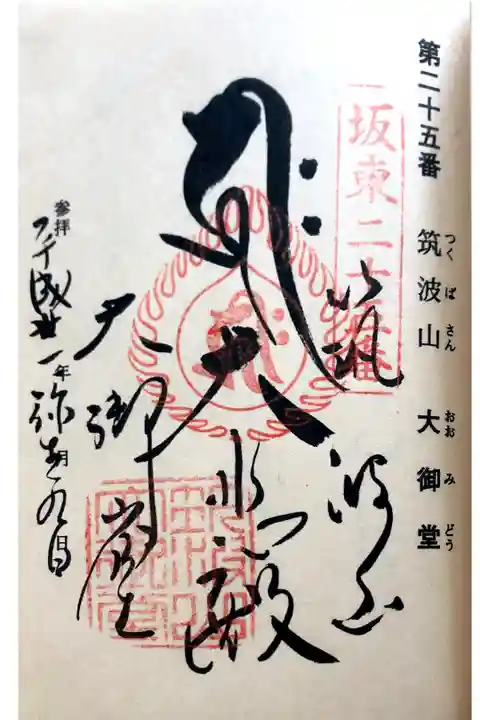 第二十五番 筑波山 大御堂
つくばさん おおみどう
坂東二十五番
筑波山
大悲殿
大御堂
参拝
平成 一年 九日